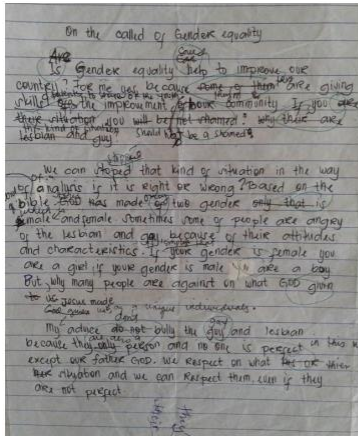 On the called of Gender equality
Is Gender equality help to improve our
country? For me yes because some of them are giving
skills the improvement of our community If you are
there situation you will be not shamed? why their are
this kind of
lesbian and guy? Should not be ashamed?
We can stoped that kind of situation in the way
of analysis is it is right or wrong? based on the
bible God was made two gender only that is
male and female sometimes some of people are angrey
of the lesbian and gay because of their attitudes
and characteristics. If your gender is female you
are a girl if your gender is male you are a boy
But why many people are against on what GOD given
to us Jesus made
God unique individuals.
My advice do not bully the guy and lesbian
because they only person and no one is perfect in this
except our father GOD. We Respect on what
situation and we can Respect them even if they
are not perfect